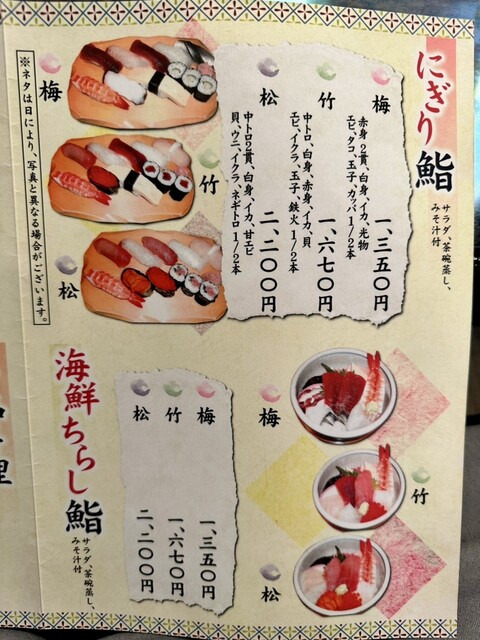 にぎり鮨
サラダ、茶碗蒸し、
みそ汁付
梅
赤身2貫、白身、イカ、光物
エビ、タコ、玉子、カッパ1/2本
一、三五〇円
竹
中トロ、白身、赤身、イカ、貝
エビ、イクラ、玉子、鉄火1/2本
一、六七〇円
松
中トロ2貫、白身、イカ、甘エビ
貝、ウニ、イクラ、ネギトロ1/2本
二、二〇〇円
梅
竹
松
※ネタは日により、写真と異なる場合がございます。
梅
竹
松
梅
一、三五〇円
竹
一、六七〇円
松
二、二〇〇円
海鮮ちらし鮨
サラダ、茶碗蒸し、
みそ汁付
理